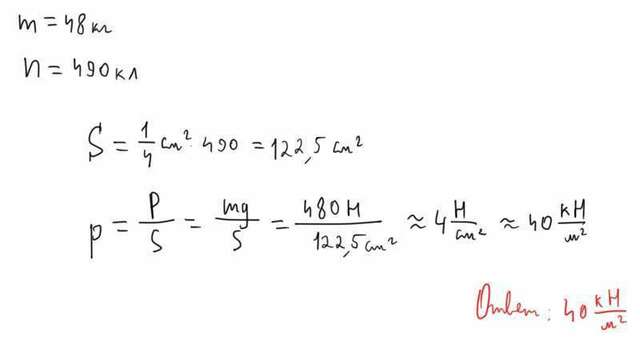 m = 48 кг
n = 490 кл
S = 1/4 см² · 490 = 122,5 см²
p = P/S = mg/S = 480 Н/122,5 см² ≈ 4 Н/см² ≈ 40 кН/м²
Ответ: 40 кН/м²